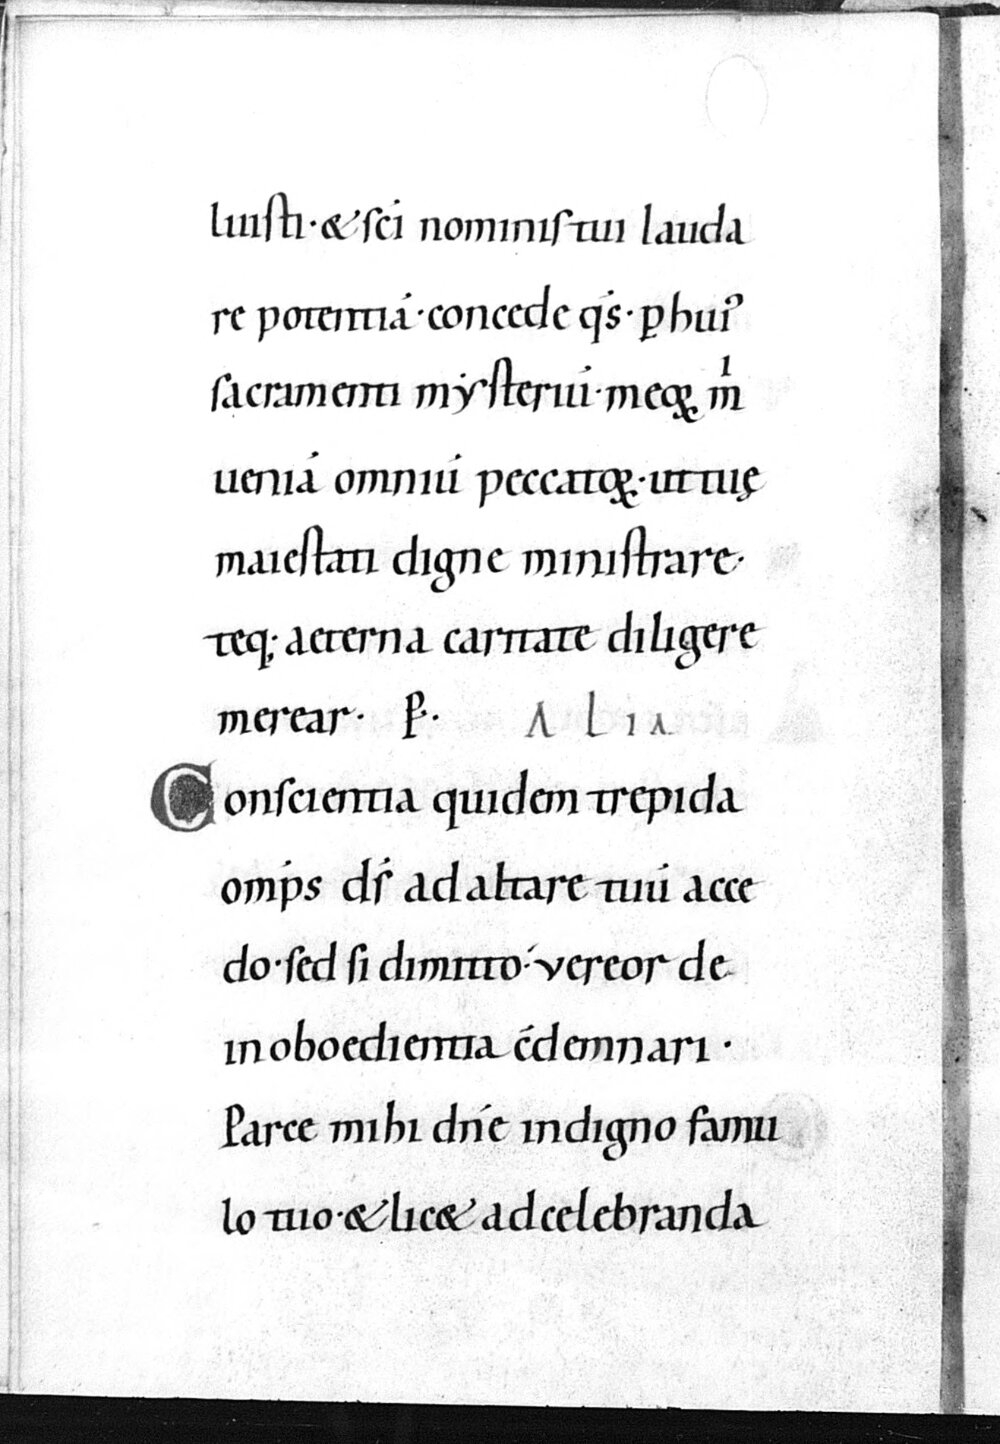 luisti · & sći nominis tui lauda
re potentiá · concede q́s · ꝑ hui᾽
sacramenti mýsterıú · meoꝝ m̍
ueniá omniú peccatoꝝ · ut tuę
maiestati digne ministrare ·
teq; aeterna caritate diligere
merear · P̶ · ALIA
Conscientia quidem trepida
omṕs dś ad altare tuú acce
do · sed si dimitto · vereor de
inoboedientia c̄demnari ·
Parce mihi dńe indigno famu
lo tuo · & lic& ad celebranda